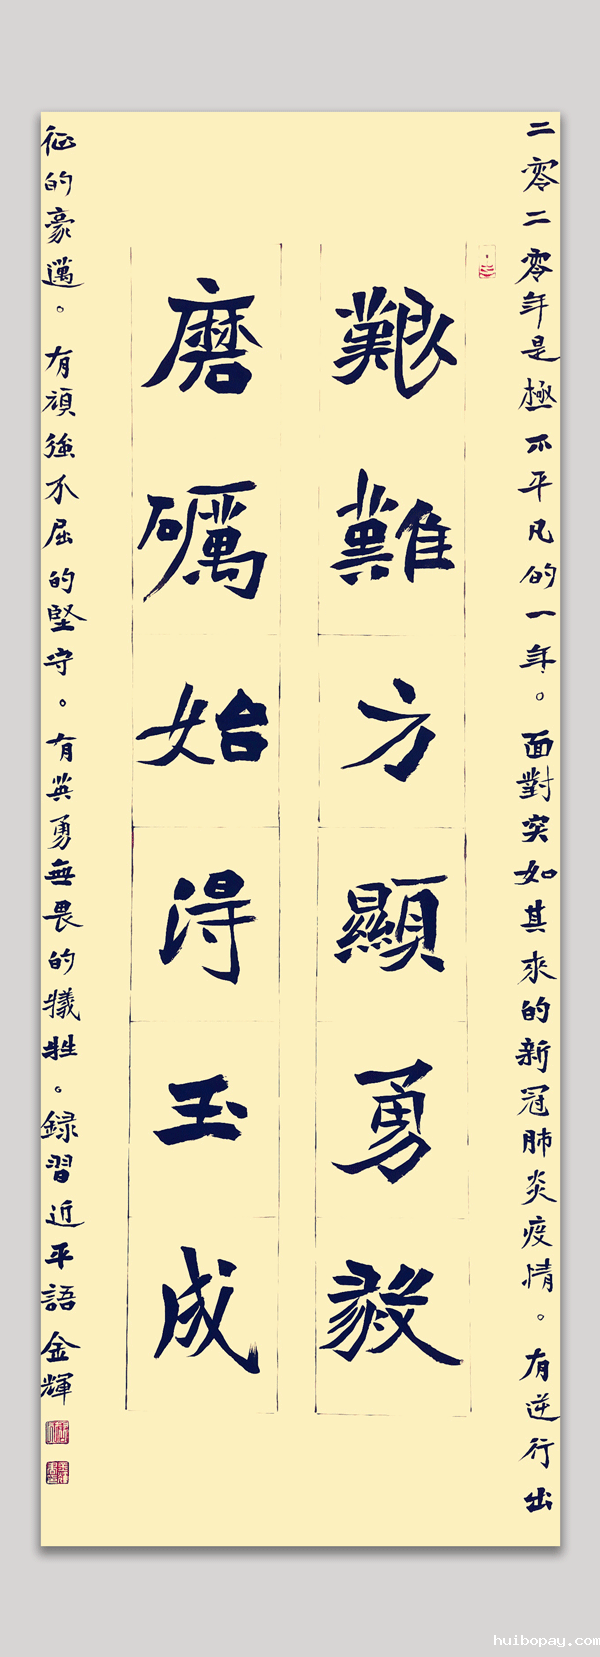 二零二零年是極不平凡的一年。面對突如其來的新冠肺炎疫情。有逆行出
艱難方顯勇毅
磨礪始得玉成
征的豪邁。有頑強不屈的堅守。有英勇無畏的犧牲。録習近平語 金輝
huibopay.com